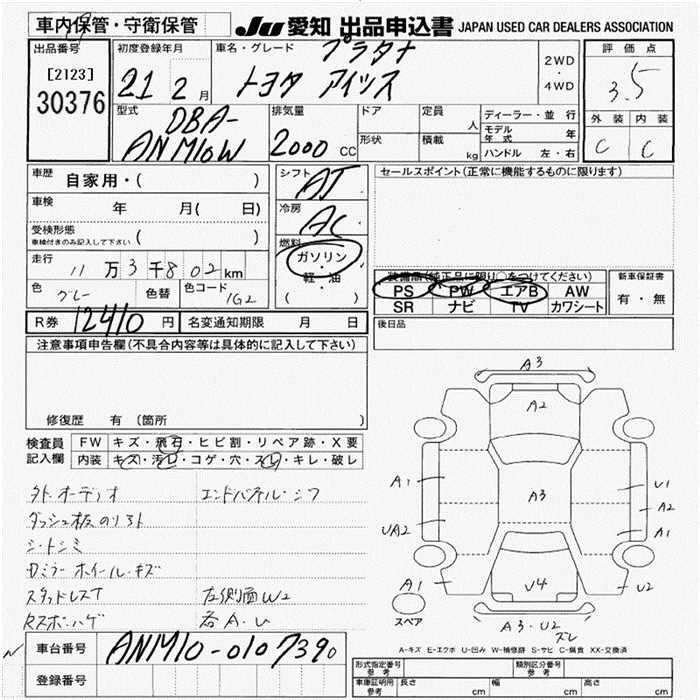 車内保管・守衛保管
JU 愛知 出品申込書 JAPAN USED CAR DEALERS ASSOCIATION
出品番号
[2123]
30376
初度登録年月
21 2月
車名・グレード
プラタナ
トヨタ アイシス
2WD
・
4WD
評価点
3.5
外装 内装
C C
型式
DBA-
ANM10W
排気量
2000 CC
ドア
形状
定員
人
積載
kg
ディーラー・並行
モデル年式 年
ハンドル 左・右
車歴
自家用・( )
車検
年 月( 日)
受検形態
車検付きのみ記入して下さい ( )
走行
11万3千802km
色
グレー
色替
色コード
1G2
R券 12410円
名変通知期限 月 日
シフト
AT
冷房
AC
燃料
ガソリン
軽・油
( )
セールスポイント(正常に機能するものに限ります)
装備品(純正品に限り○をつけてください)
PS PW エアB AW
SR ナビ TV カワシート
新車保証書
有・無
後日品
注意事項申告欄(不具合内容等は具体的に記入して下さい)
修復歴 有 (箇所 )
検査員
記入欄
FW キズ・飛石・ヒビ割・リペア跡・X要
内装 キズ・汚レ・コゲ・穴・スレ・キレ・破レ
外.オーディオ
エンドパネル・シワ
ダッシュ板のり跡
シートシミ
Dミラー ホイール・キズ
スタッドレス
左側面W2
各A・U
車台番号 ANM10-0107390
登録番号
A3
A2
A1
A3
U1
A2
UA2
A1
A1
U4
U2
スペア
A3・U2
ズレ
A-キズ E-エクボ U-凹み W-補修跡 S-サビ C-腐食 XX-交換済
形式指定番号
参考
類別区分番号
参考
車庫証明用
参考
長さ cm
幅 cm
高さ cm